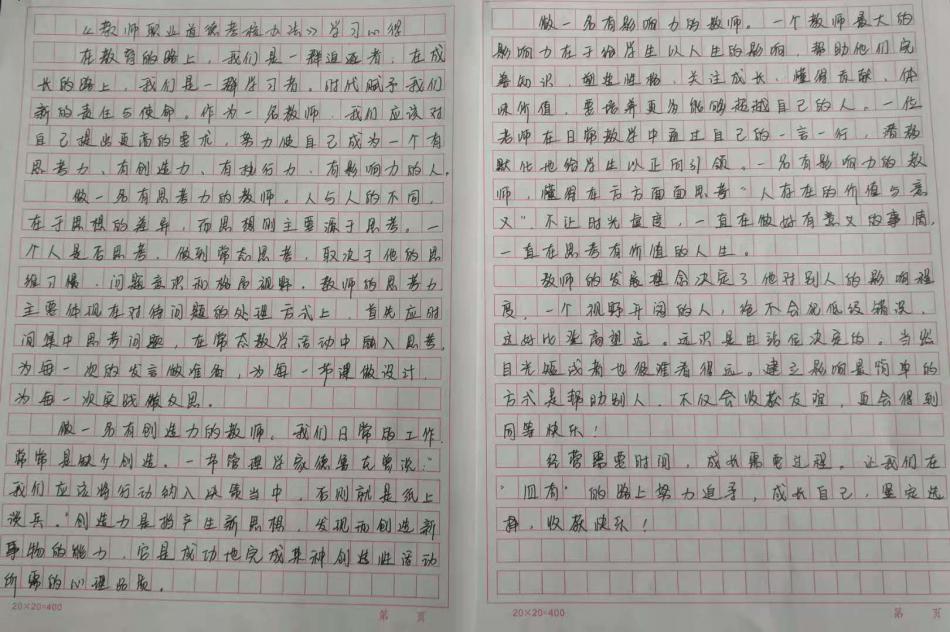 《教师职业道德考核办法》学习心得
在教育的路上，我们是一群追逐者，在成
长的路上，我们是一群学习者。时代赋予我们
新的责任与使命。作为一名教师，我们应该对
自己提出更高的要求，努力使自己成为一个有
思考力、有创造力、有执行力、有影响力的人。
做一名有思考力的教师。人与人的不同，
在于思想的差异，而思想则主要源于思考。一
个人是否思考，做到常态思考，取决于他的思
维习惯、问题意识和格局视野。教师的思考力
主要体现在对待问题的处理方式上，首先应时
间集中思考问题，在常态教学活动中融入思考，
为每一次的发言做准备，为每一节课做设计，
为每一次实践做反思。
做一名有创造力的教师。我们日常的工作，
常常是缺少创造。一部管理学家德鲁克曾说：“
我们应该将行动纳入决策当中，否则就是纸上
谈兵。”创造力是指产生新思想，发现和创造新
事物的能力，它是成功地完成某种创造性活动
所需的心理品质。
做一名有影响力的教师。一个教师最大的
影响力在于给学生以人生的影响，帮助他们完
善知识、塑造性格、关注成长、懂得贡献、体
味价值，要培养更多能够超越自己的人。一位
老师在日常教学中通过自己的一言一行，潜移
默化地给学生以正向引领。一名有影响力的教
师，懂得在方方面面思考“人存在的价值与意
义”，不让时光虚度，一直在做好有意义的事情，
一直在思考有价值的人生。
教师的发展理念决定了他对别人的影响程
度，一个视野开阔的人，绝不会犯低级错误，
这好比登高望远。远识是由站位决定的。当然
目光短浅者也很难看得远。建立影响最简单的
方式是帮助别人，不仅会收获友谊，更会得到
同等快乐！
经营需要时间，成长需要过程。让我们在
“四有”的路上努力追寻，成长自己，坚定选
择，收获快乐！
20×20=400
第 页
20×20=400
第 页